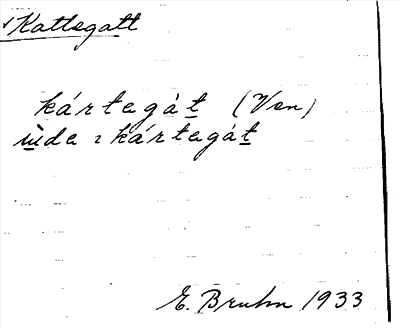 Kattegatt
kártegát (Ven)
ùde ı kártegát
E. Bruhn 1933